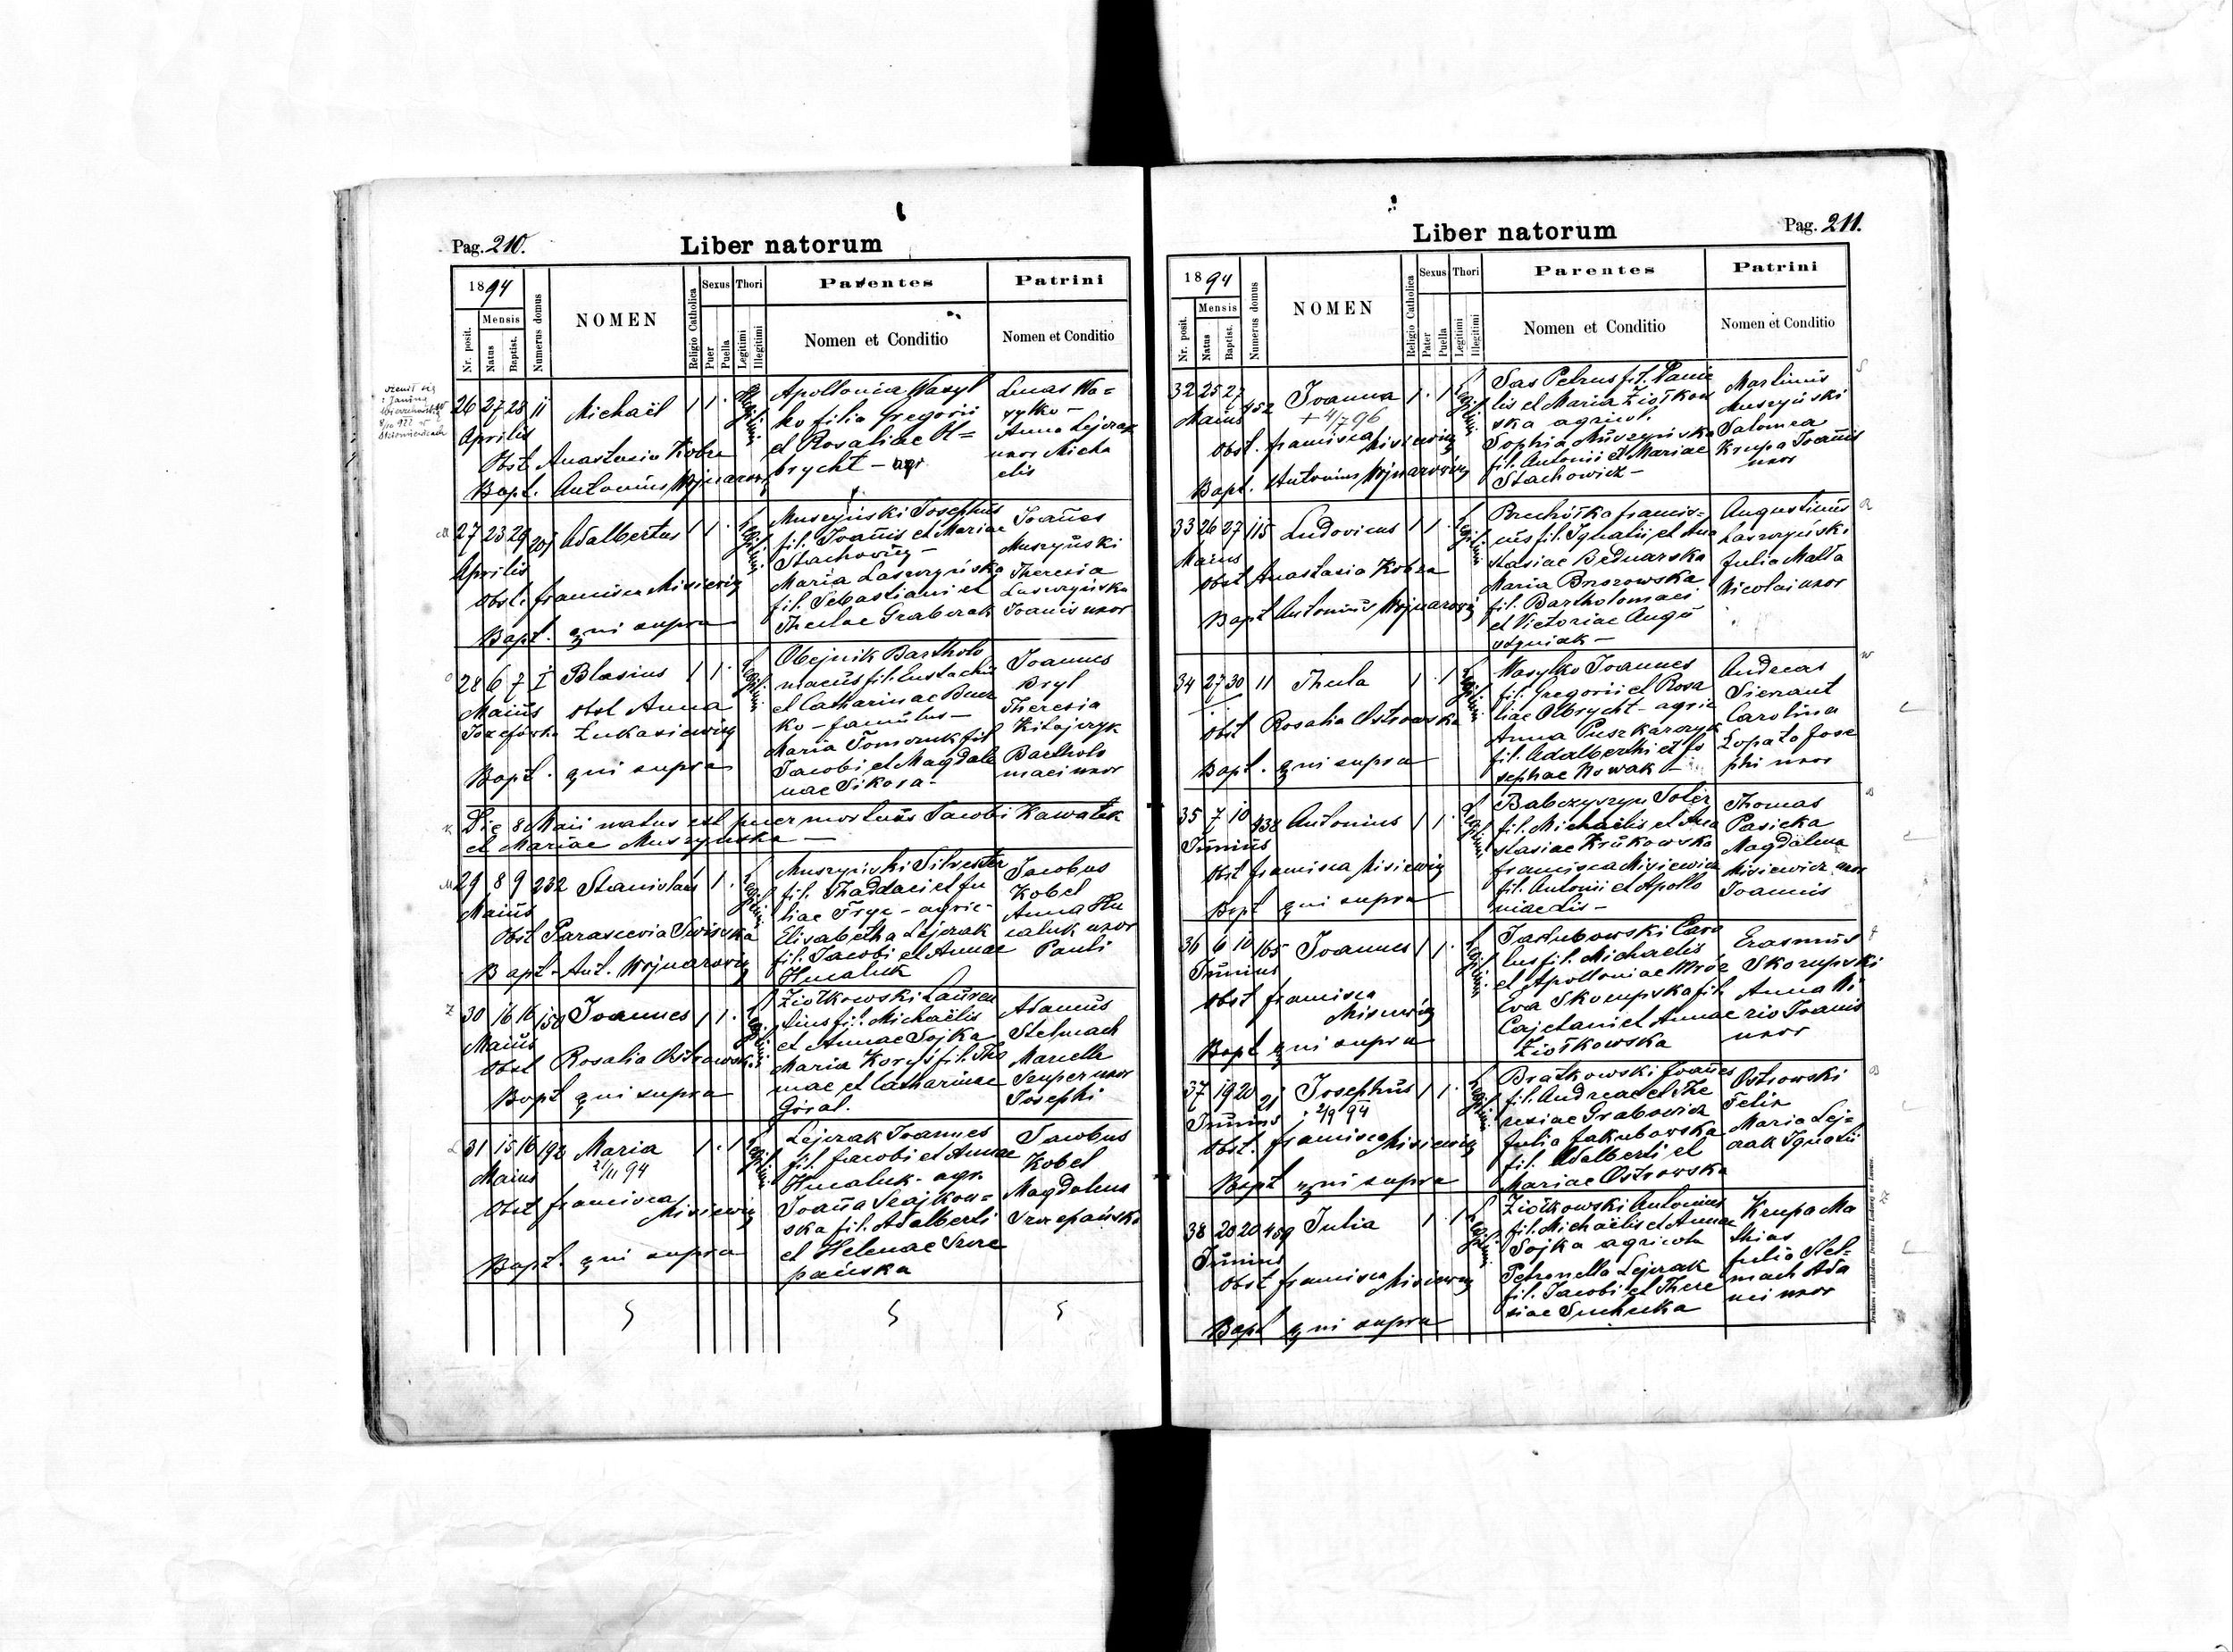 Pag. 210.
Liber natorum
1894
Nr. posit.
Mensis
Natus
Baptist.
Numerus domus
NOMEN
Religio Catholica
Sexus
Puer
Puella
Thori
Legitimi
Illegitimi
Parentes
Nomen et Conditio
Patrini
Nomen et Conditio
26 27 28 11 Michaël 1 1 .
Aprilis
Obst Anastasia Kobza
Bapt. Antonius Wojnarowicz
Apollonia Wasyl
ko filia Gregorii
et Rosaliae Ol=
brycht - agr
Lucas Wa=
sylko -
Anna Lejczak
uxor Micha
elis
27 23 29 207 Adalbertus 1 1 .
Aprilis
Obst. Francisca Misiewicz
Bapt. qui supra
Muszyński Josephus
fil. Joañis et Mariae
Stachowicz -
Maria Laszczyńska
fil. Sebastiani et
Theclae Grabczak
Joañes
Muszyński
Theresia
Laszczyńska
Joanis uxor
28 6 7 I Blasius 1 1 .
Maius obst Anna
Józefówka Łukasiewicz
Bapt. qui supra
Olejnik Bartholo
maeus fil. Eustachii
et Catharinae Benz
ko - famulus -
Maria Tomczuk fil
Jacobi et Magdale
nae Sikora -
Joannes
Bryl
Theresia
Kitajczyk
Bartholo
maei uxor
Die 8 Maii natus est puer mortuus Jacobi Kawałek
et Mariae Muszyńska —
29 8 9 232 Stanislaus 1 .
Maius
Obst Parascevia
Bapt. Ant. Wojnarowicz
Muszyński Silvester
fil. Thaddaei et Ju
liae Fryc - agric -
Elisabetha Lejczak
fil. Jacobi et Annae
Hucaluk
Jacobus
Kobel
Anna Hu
caluk uxor
Pauli
30 16 16 150 Joannes 1 1 .
Maius
Obst Rosalia Ostrowska
Bapt qui supra
Ziółkowski Lauren
tius fil. Michaëlis
et Annae Sojka
Maria Korcyś fil. Tho
mae et Catharinae
Góral.
Adamus
Stelmach
Mariella
Semper uxor
Josephi
31 15 16 192 Maria 1 . 1
Maius 21/11 94
Obst Francisca Misiewicz
Bapt. qui supra
Lejczak Joannes
fil. Jacobi et Annae
Hucaluk - agr.
Joaña Szajkow=
ska fil. Adalberti
et Helenae Szcze
pańska
Jacobus
Kobel
Magdalena
Szczepańska
Pag. 211.
Liber natorum
1894
Nr. posit.
Mensis
Natus
Baptist.
Numerus domus
NOMEN
Religio Catholica
Sexus
Puer
Puella
Thori
Legitimi
Illegitimi
Parentes
Nomen et Conditio
Patrini
Nomen et Conditio
32 25 27 452 Joanna 1 . 1
Maius + 4/7 96
Obst. Francisca Misiewicz
Bapt. Antonius Wojnarowicz
Sas Petrus fil. Danie
lis et Maria Ziółkow
ska agricol.
Sophia Muszyńska
fil. Antonii et Mariae
Stachowicz -
Martinus
Muszyński
Salomea
Krupa Joañis
uxor
33 26 27 115 Ludovicus 1 1 .
Maius
Obst Anastasia Kobza
Bapt Antonius Wojnarowicz
fil. Ignatii et Ana
stasiae Bednarska
Maria Brzozowska
fil. Bartholomaei
et Victoriae Augu
styniak -
Augustinus
Laszczyński
Julia Malta
Nicolai uxor
34 27 30 11 Thecla 1 . 1
Obst Rosalia Ostrowska
Bapt. qui supra
Wasylko Joannes
fil. Gregorii et Rosa
liae Olbrycht - agric
Anna Puszkarczyk
fil. Adalberthi et Jo
sephae Nowak -
Andreas
Sierzant
Carolina
Łopato Jose
phi uxor
35 7 10 438 Antonius 1 1 .
Junius
Obst Francisca Misiewicz
Bapt qui supra
Babczyszyn Soter
fil. Michaëlis et Ana
stasiae Krukowska
Francisca Misiewicz
fil. Antonii et Apollo
niae Lis -
Thomas
Pasieka
Magdalena
Misiewicz uxor
Joannis
36 6 10 165 Joannes 1 1 .
Junius
Obst Francisca
Misiewicz
Bapt qui supra
Jakubowski Caro
lus fil. Michaelis
et Apolloniae Mróz
Eva Skorupska fil.
Cajetani et Annae
Ziółkowska
Erasmus
Skorupski
Anna
Joanis
uxor
37 19 20 21 Josephus 1 1 .
Junius 2/9 94
Obst. Francisca Misiewicz
Bapt qui supra
Bratkowski Joañes
fil. Andreae et The
resiae Grabowicz
Julia Jakubowska
fil. Adalberti et
Mariae Ostrowska
Ostrowski
Felix
Maria Lej=
czak Ignatii
38 20 20 459 Julia 1 . 1
Junius
Obst Francisca Misiewicz
Bapt qui supra
Ziółkowski Antonius
fil. Michaëlis et Annae
Sojka agricola
Petronella Lejczak
fil. Jacobi et There
siae Suchecka
Krupa Ma
thias
Julia Stel=
mach Ada
mi uxor